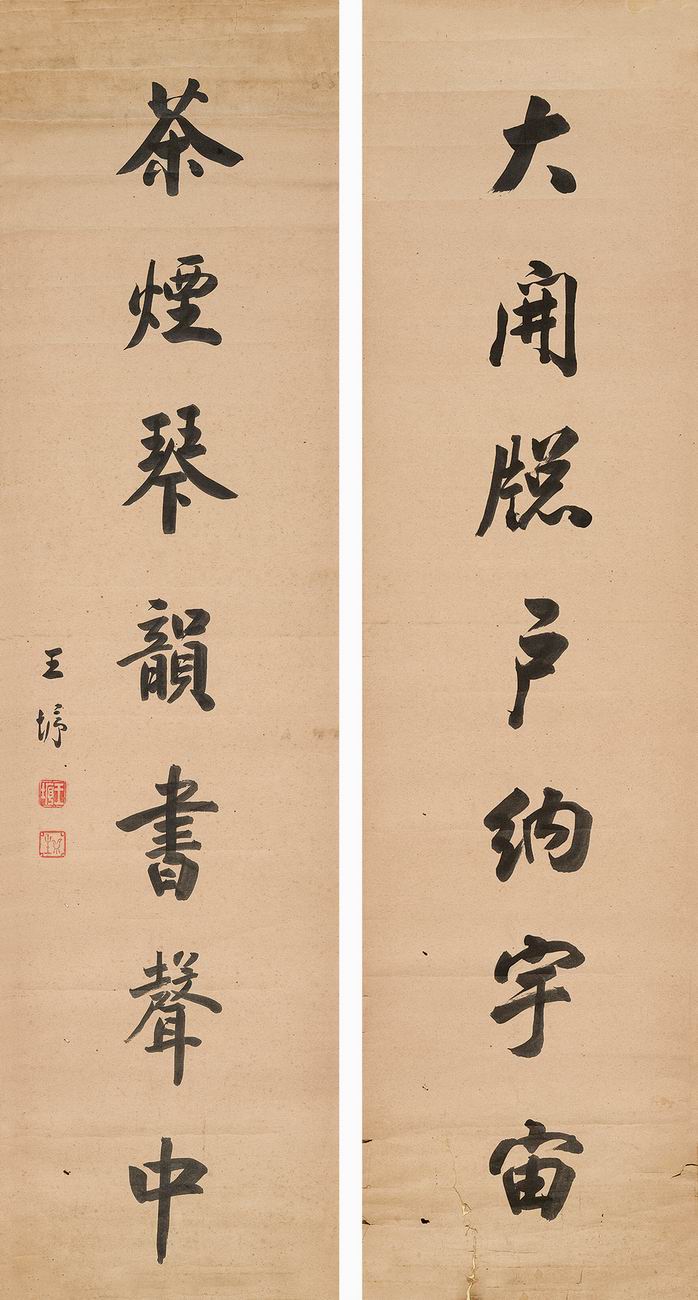 大開牕戶納宇宙
茶煙琴韻書聲中
王垿